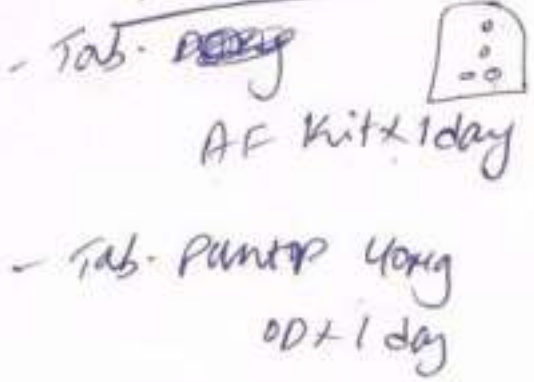 - Tab.
AF Kit x 1 day
- Tab. Pantop 40mg
OD x 1 day